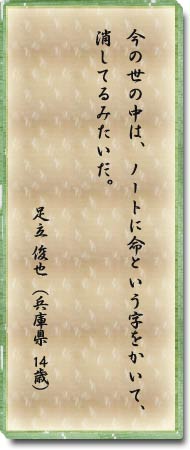 今の世の中は、ノートに命という字をかいて、
消してるみたいだ。
足立 俊也（兵庫県 14歳）